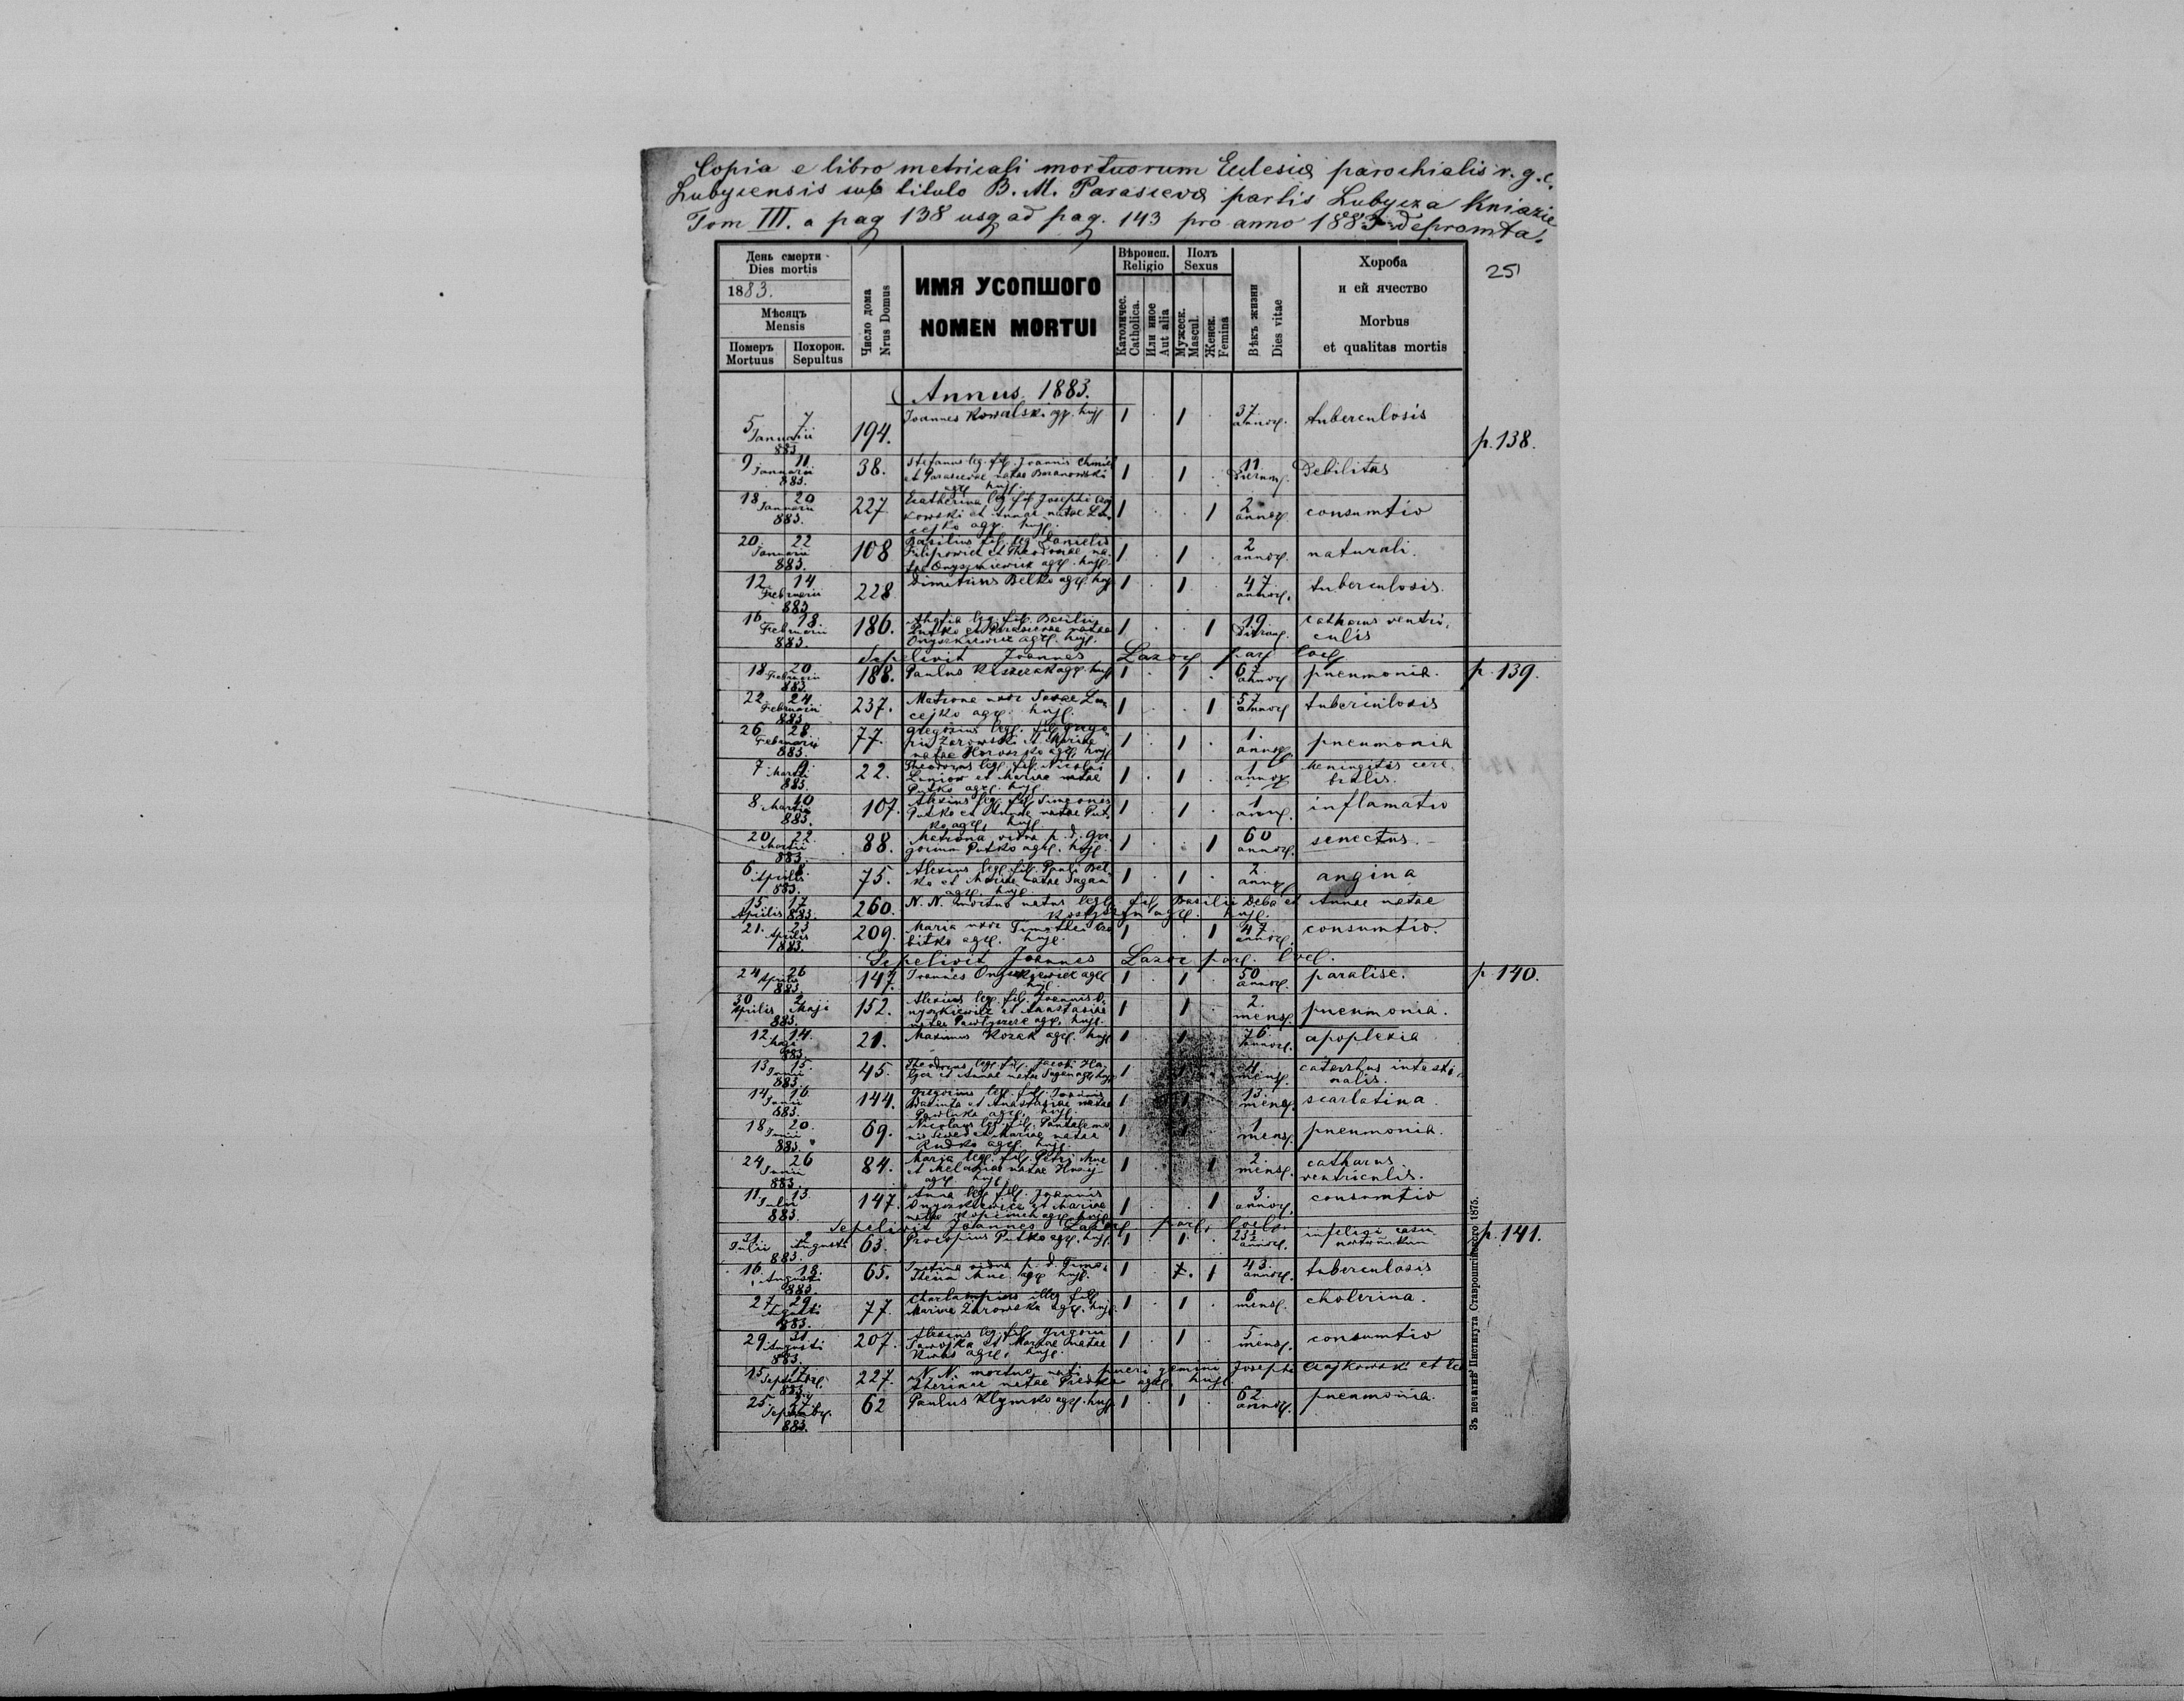 Copia e libro metricali mortuorum Eclesiæ parochialis r. g. c.
Lubycensis sub titulo B. M. Parascevæ partis Lubycza Kniazie
Tom III. a pag 138 usq ad pag. 143 pro anno 1883 depromta.
25
День смерти
Dies mortis
1883.
Мѣсяцъ
Mensis
Померъ
Mortuus
Похорон.
Sepultus
Число дома
Nrus Domus
ИМЯ УСОПШОГО
NOMEN MORTUI
Вѣроисп.
Religio
Католичес.
Catholica.
Или иное
Aut alia
Полъ
Sexus
Мужеск.
Mascul.
Женск.
Femina
Вѣкъ жизни
Dies vitae
Хороба
и ей ячество
Morbus
et qualitas mortis
Annus 1883.
5 7 Januarii 883 194. Joannes Kowalski agr. huj 1 . 1 . 37 annor. tuberculosis
p. 138.
9 11 Januarii 883. 38. Stefanus leg. fil. Joannis
et Parascevae natae Baranowski
agr. huj. 1 . 1 . 11 Dierum Debilitas
18 20 Januarii 883. 227. leg fil Josephi
kowski et Annae natae
agr. huj. 1 . . 1 2 annor. consumtio
20. 22 Januarii 883. 108 Basilius fil. leg Danielis
Filipowicz et Theodosiae na
tae Onyszkiewicz agr. huj. 1 . 1 . 2 annor. naturali.
12 14 Februarii 883 228 Dimitrius Belko agr. huj 1 . 1 . 47 annor. tuberculosis.
16 18 Februarii 883. 186. leg. fil. Basilii
Putko et Parascevae natae
Onyszkiewicz agr. huj. 1 . . 1 19 catharus ventri
culis
Sepelivit Joannes Lazor par loc
18 20 Februarii 883. 188. Paulus agr. huj 1 . 1 . 67 annor pneumonia. p. 139.
22 24 Februarii 883 237. Matrona uxor Savae
cejko agr. huj. 1 . . 1 57 annor tuberculosis
26 28 Februarii 883. 77. Gregorius leg. fil.
Zarowski et Mariae
natae agr. huj 1 . 1 . 1 annor pneumonia
7 9 Martii 883. 22. Theodorus leg. fil. Nicolai
et Mariae natae
Putko agr. huj 1 . 1 . 1 annor Meningitis cere
bralis.
8 10 Martii 883. 107. Alexius leg. fil Simeonis
Putko et Annae natae Put
ko agr. huj 1 . 1 . 1 annor. inflamatio
20 22 Martii 883. 88. Matrona vidua p. d. Gre
Putko agr. huj. 1 . . 1 60 annor. senectus
6 8 Aprilis 883. 75. Alexius leg. fil. Pauli Bel
ko et Mariae natae
agr. huj. 1 . 1 . 2 annor angina
15 17 Aprilis 883. 260. N. N. mortuo natus leg. fil Basilii Deba et Annae natae
agr. huj.
21. 23 Aprilis 883. 209. Maria uxor Timothei
bitko agr. huj. 1 . . 1 47 annor. consumtio.
Sepelivit Joannes Lazor par. loc.
24 26 Aprilis 883. 147. Joannes Onyszkiewicz agr
huj. 1 . 1 . 50 annor. paralise. p. 140.
30 Aprilis 2 Maji 883. 152. Alexius leg. fil. Joannis O
nyszkiewicz et Anastasiae
natae agr. huj. 1 1 . 2. mens. pneumonia.
12 14. Maji 883. 21. Maximus Kozak agr. huj 1 1 76. annor. apoplexia
13 15. Junii 883. 45. Theodorus leg. fil. Jacobi
et Annae natae agr huj 1 1 4 mens. catarrhus intesti
nalis.
14 16 Junii 883. 144. Gregorius leg. fil.
et Anastasiae natae
Pawluk agr. huj. 1 1 13 mens. scarlatina
18 20. Junii 883. 69. Nicolaus leg. fil. Pantaleimo
nis et Mariae natae
Rudko agr. huj. 1 1 1 mens. pneumonia.
24 26 Junii 883. 84. Maria leg. fil. Petri Muc
et Melaniae natae
agr. huj 1 . . 1 2. mens. catharus
ventriculis.
11. 13. Julii 883. 147. Anna leg fil. Joannis
Onyszkiewicz et Mariae
natae agr. huj 1 . . 1 3. annor. consumtio
Sepelivit Joannes Lazor par. loc.
31 Julii 2 Augusti 883. 63. Procopius Putko agr. huj. 1 . 1 . annor. infelici casu p. 141.
16. 18. Augusti 883. 65. Justina vidua p. d. Timo
theia Muc agr huj. 1 . . 1 43. annor. tuberculosis
27 29 Augusti 883. 77. Charlampius illeg fil
Mariae Zarowska agr. huj. 1 . 1 . 6 mens. cholerina.
29 31 Augusti 883. 207. Alexius leg. fil. Gregorii
et Mariae natae
agr. huj. 1 . 1 . 5 mens. consumtio
15 17 Septembr. 883. 227. N. N. mortuo nati pueri gemini Josephi Czajkowski et
therinae natae agr. huj
25. 27 Septembr. 883. 62 Paulus Klymko agr. huj. 1 . 1 . 62 annor. pneumonia.
Зъ печатнѣ Института Ставропигійского 1875.